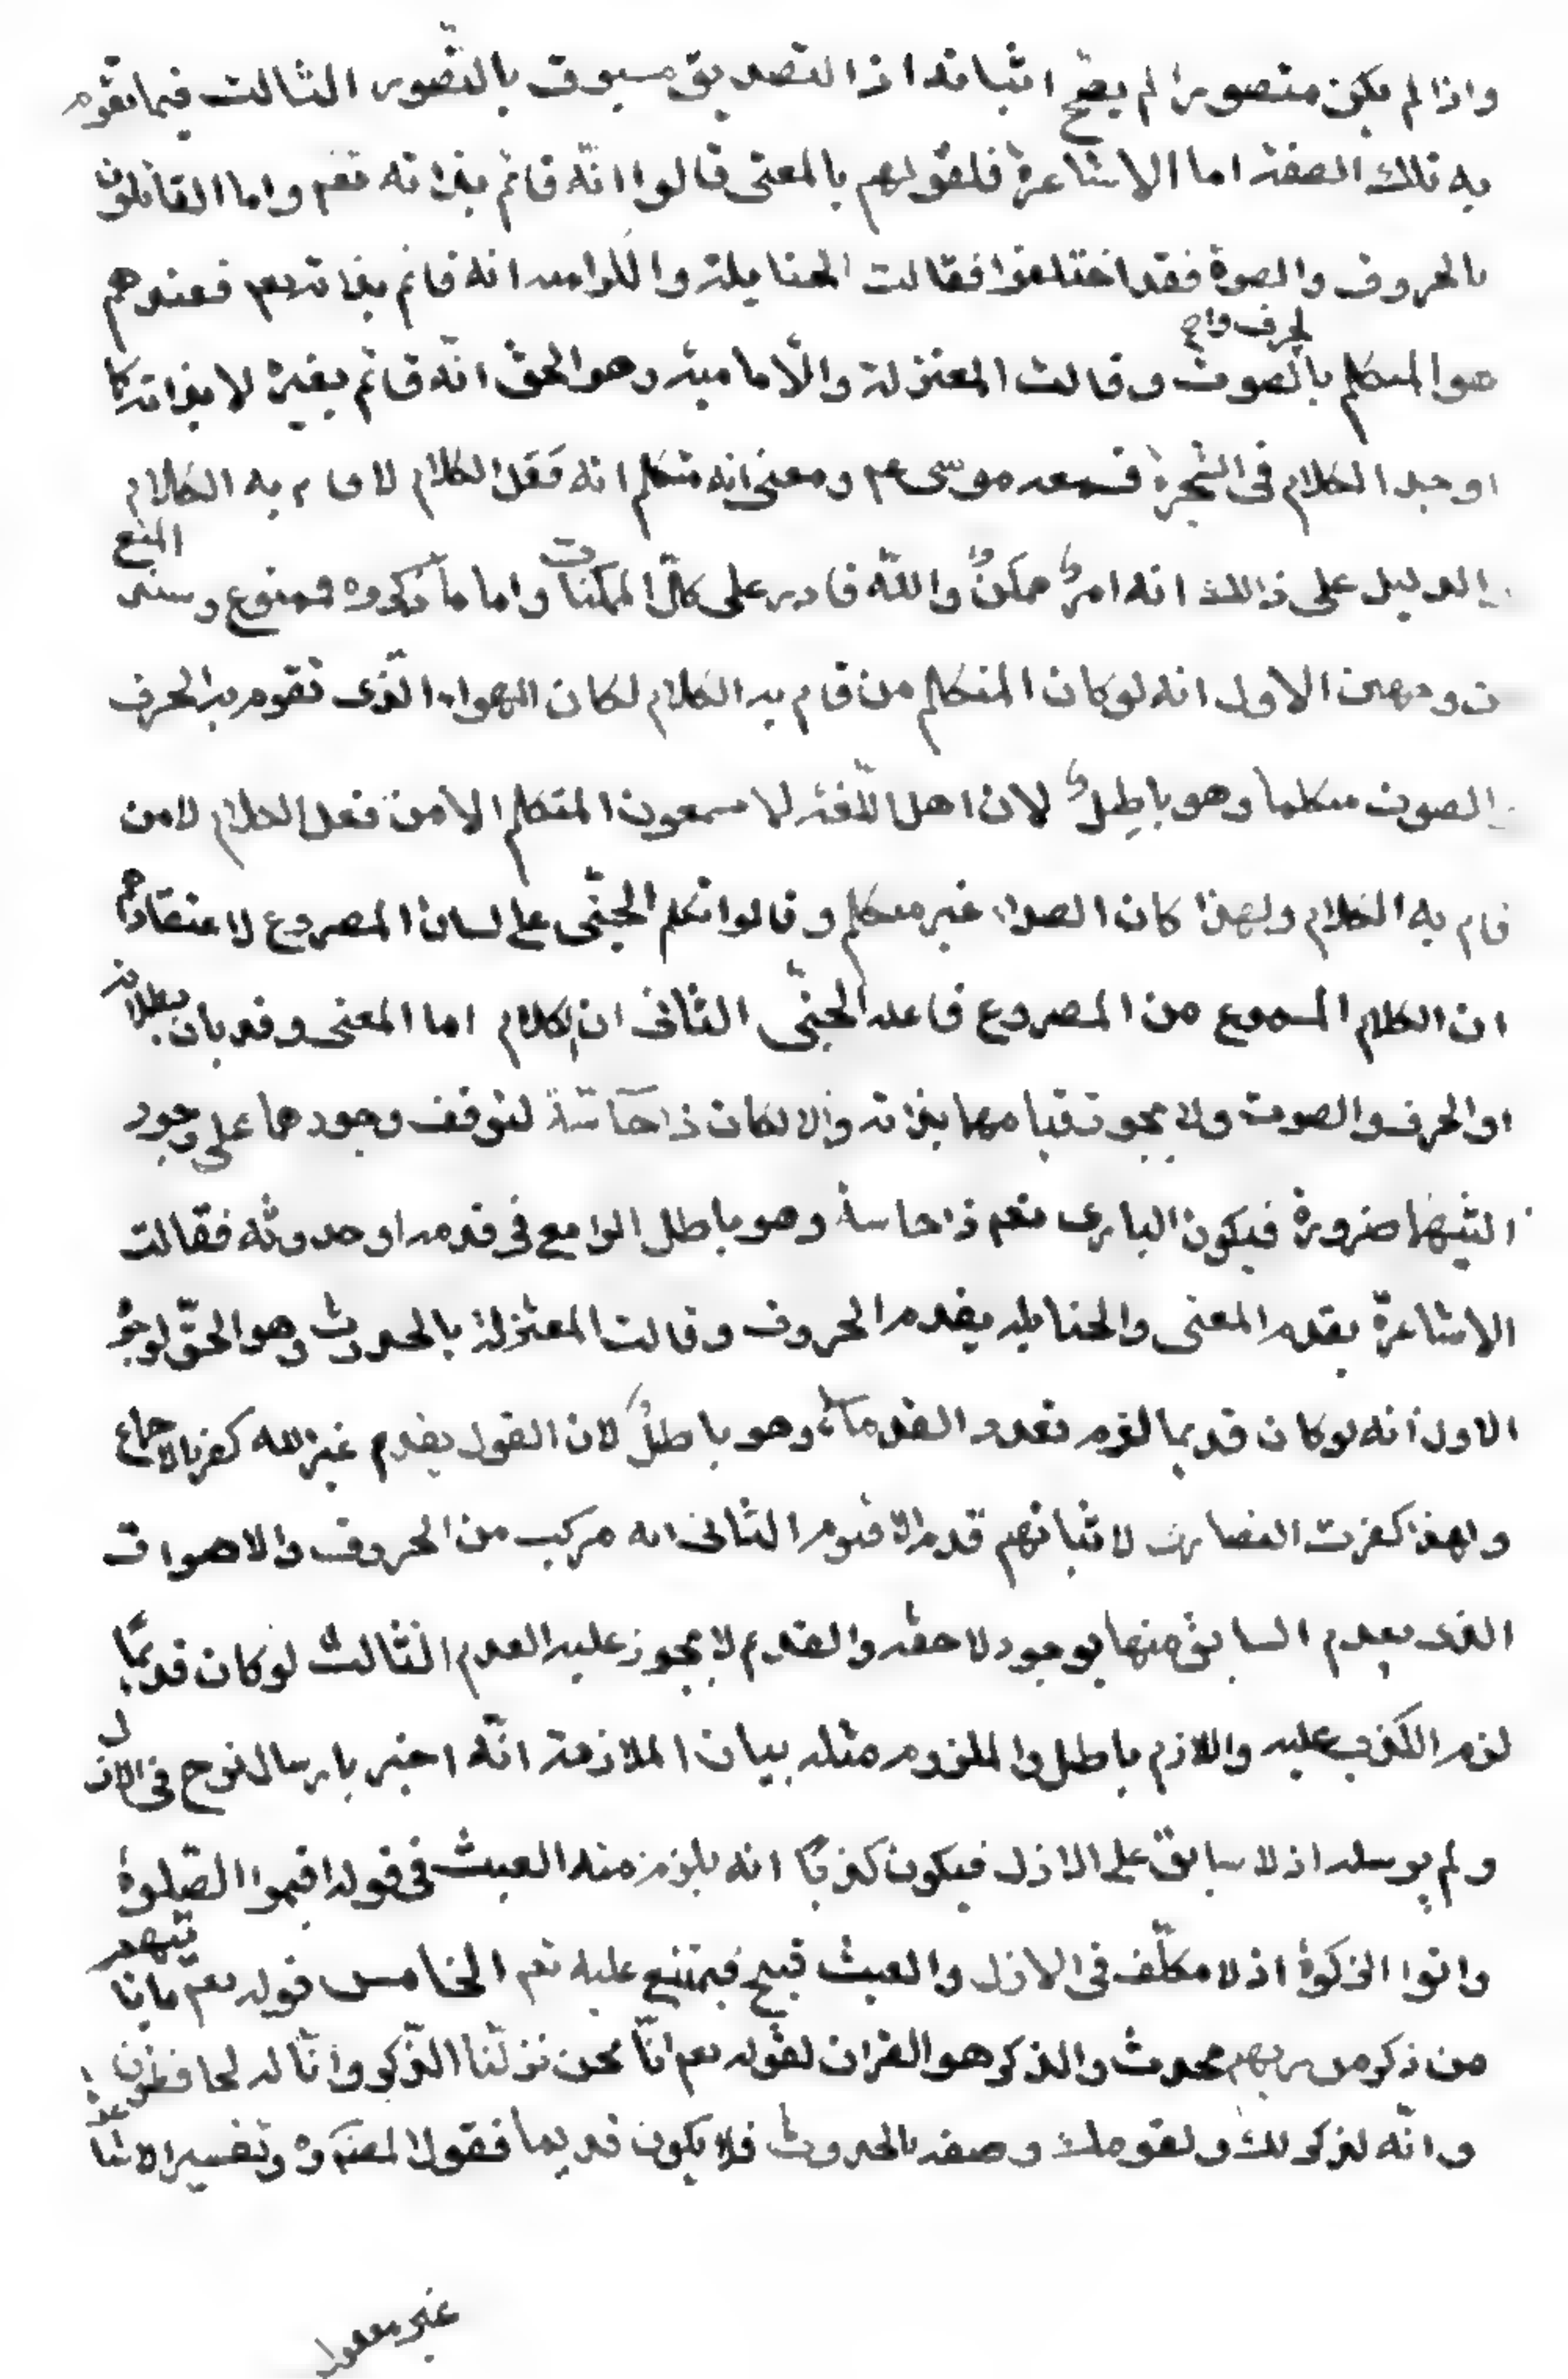 واذا لم يكن متصورا لم يصح اثباته اذ التصديق مسبوق بالتصور الثالث فيما تقوم
به تلك الصفة اما الاشاعرة فلقولهم بالمعنى قالوا انّه قائم بذاته تعم واما القائلون
بالحروف والصوة فقد اختلفوا فقالت الحنابلة والكرامية انه قائم بذاته تعم فعندهم
هو المتكلم بالحرف والصوت وقالت المعتزلة والاّمامية وهو الحق انّه قائم بغيره لا بذاته كما
اوجد الكلام فى الشجرة فسمعه موسى عم ومعنى انه متكلم انه فَعَلَ الكلام لا قام به الكلام
والدليل على ذالك انه امرٌ ممكنٌ واللّه قادر على كلّ الممكنات واما ما ذكروه فممنوع وسند المنع
من وجهين الاول انه لو كان المتكلم من قام به الكلام لكان الهواء الّذى تقوم به الحرف
والصوت متكلما وهو باطِلٌ لان اهل اللّغة لا يسمعون المتكلم الا من فعل الكلام لا من
قام به الكلام ولهذا كان الصداء غير متكلم وقالوا تكلم الجنّى على لسان المصروع لاعتقادهم
ان الكلام المسموع من المصروع فاعله الجنّى الثانى ان الكلام اما المعنى وقد بان بطلانه
او الحرف والصوت ولا يجوز قيامهما بذاته والا لكان ذا حاسّة لتوقف وجودهما على وجود
التيهما ضرورة فيكون البارى تعم ذا حاسة وهو باطل الرابع فى قدمه او حدوثه فقالت
الاشاعرة بقدم المعنى والحنابله بقدم الحروف وقالت المعتزلة بالحدوث وهو الحقّ لوجوه
الاول انه لو كان قديما لزم تعدد القدماء وهو باطلٌ لان القول بقدم غير الله كفر بالاجماع
ولهذا كفرت النصارى لاثباتهم قدم الاقنوم الثانى انه مركب من الحروف والاصوات
الذى يعدم السابق منها بوجود لاحقه والقديم لا يجوز عليه العدم الثالث لو كان قديمًا
لزم الكذب عليه واللازم باطل والملزوم مثله بيان الملازمة انّه اخبر بارسال نوح فى الازل
ولم يرسله اذ لا سابق على الازل فيكون كذبًا انه يلزم منه العبث فى قوله اقيموا الصّلوة
واتوا الزكوة اذ لا مكلّف فى الازل والعبث قبيح فيمتنع عليه تعم الخامس قوله تعم ما ياتيهم
من ذكر من ربهم محدث والذكر هو القران لقوله تعم انّا نحن نزلّنا الذّكر وانّا له لحافظون
وانّه لذكر لك ولقومك وصفه بالحدوث فلا يكون قديما فقول المصنف ره وتفسير الاشاعرة
غير معقول